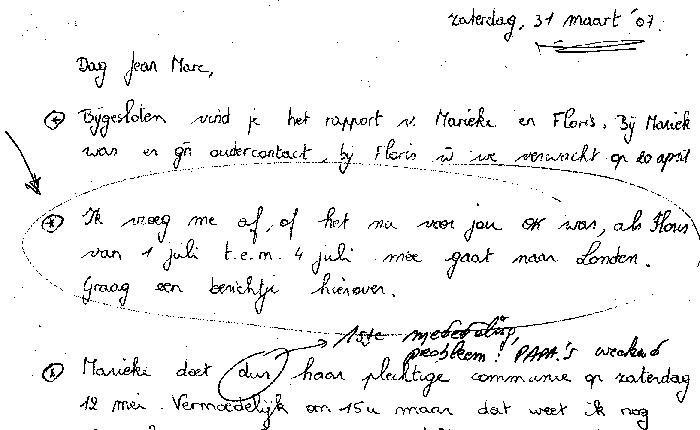 zaterdag, 31 maart '07.
Dag Jean Marc,
Bijgesloten vind je het rapport v. Marieke en Floris. Bij Mariek
was er gn oudercontact, bij Floris w we verwacht op 20 april
Ik vroeg me af, of het nu voor jou OK was, als Floris
van 1 juli t.e.m. 4 juli mee gaat naar Londen.
Graag een berichtje hierover.
1ste mededeling,
probleem! PAPA'S weekend
Marieke doet dus haar plechtige communie op zaterdag
12 mei. Vermoedelijk om 15u maar dat weet ik nog